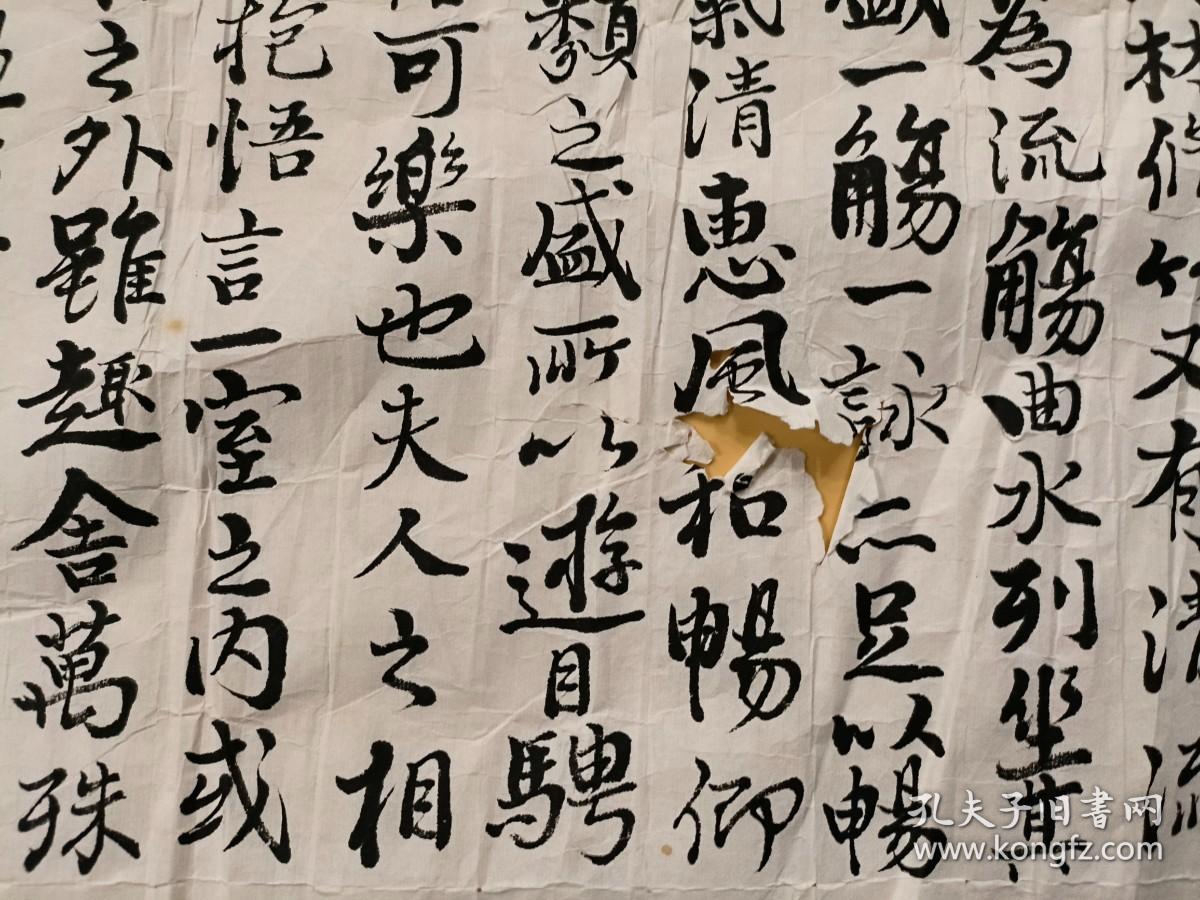 林修竹又有清流
為流觴曲水列坐其
盛一觴一詠亦足以暢
氣清惠風和暢仰
類之盛所以遊目騁
可樂也夫人之相
抱悟言一室之內或
之外雖趣舍萬殊
孔夫子旧書网
www.kongfz.com